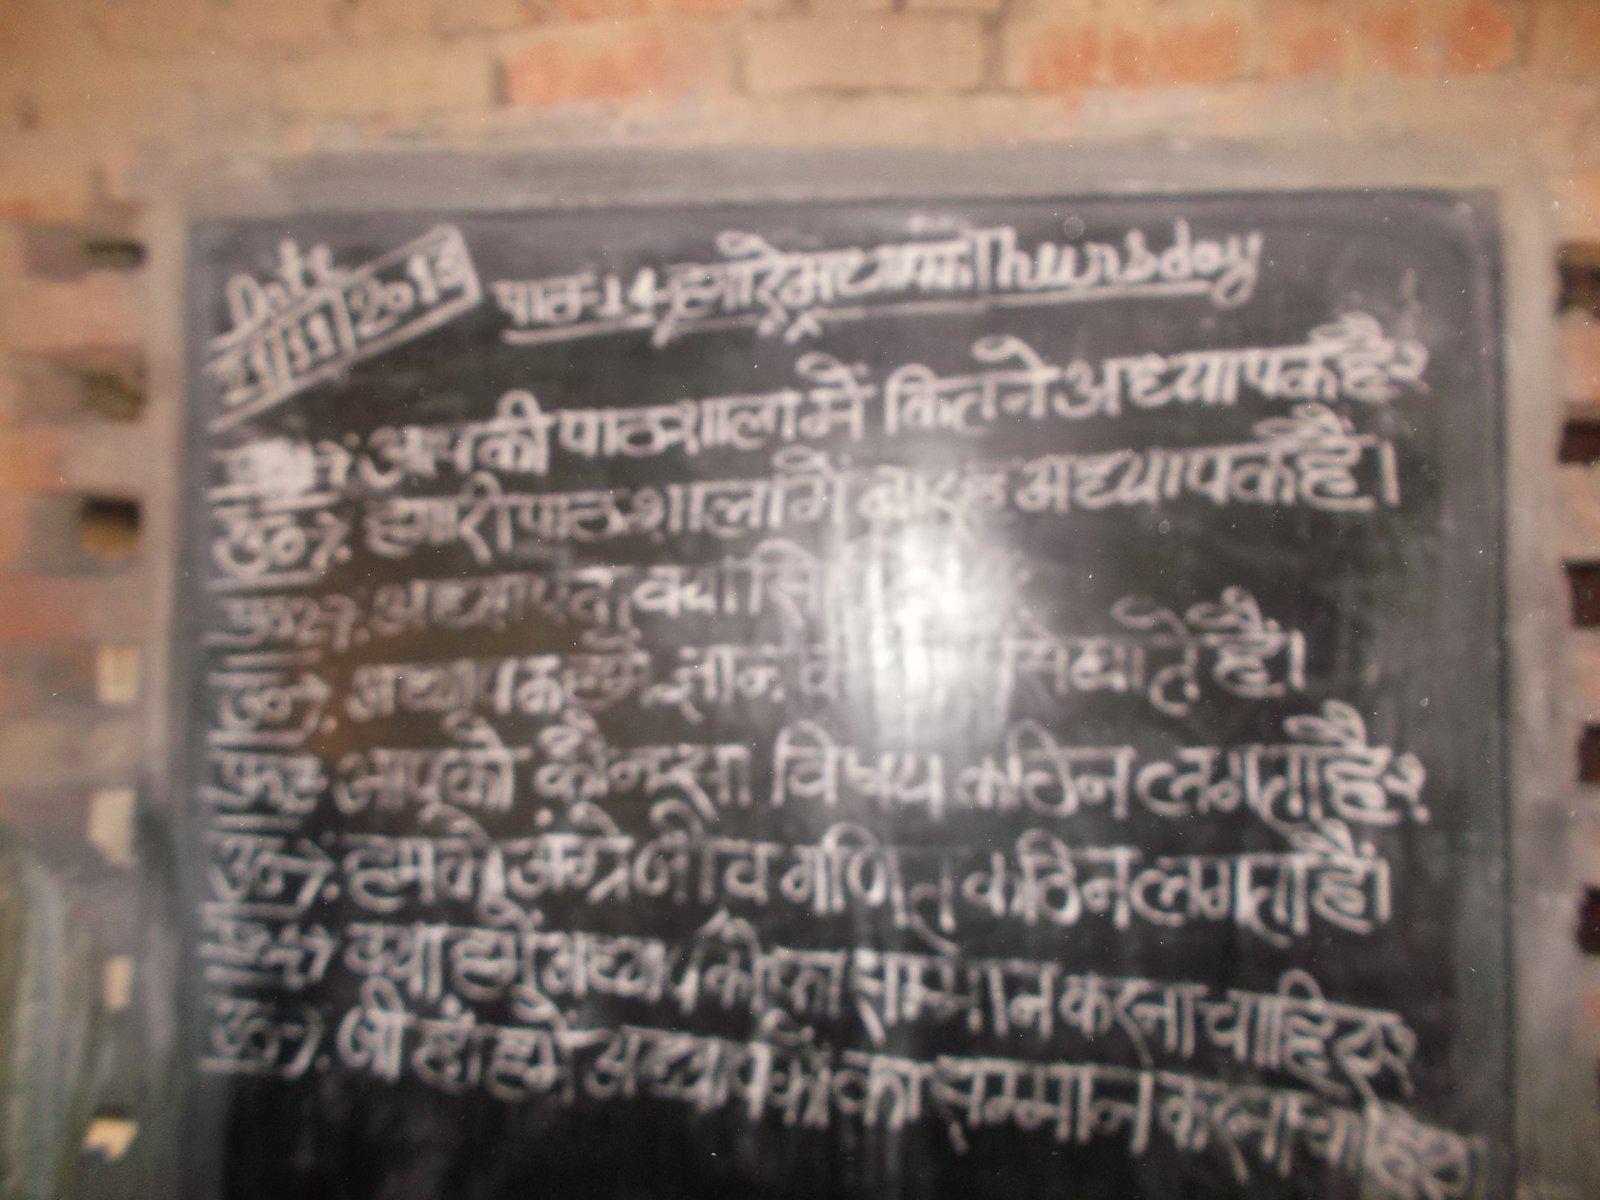 Date
21/11/2013
पाठ-14 हमारे अध्यापक Thursday
आपकी पाठशाला में कितने अध्यापक है?
उ०1. हमारी पाठशाला में बारह अध्यापक है।
प्र०2. अध्यापक क्या
उ०2. अध्यापक हमें ज्ञान सिखाते है।
प्र०3. आपको कौन-सा विषय कठिन लगता है?
उ०3. हमको अंग्रेजी व गणित कठिन लगता है।
क्या हमें अध्यापकों का सम्मान करना चाहिए?
जी हां हमें अध्यापकों का सम्मान करना चाहिए।